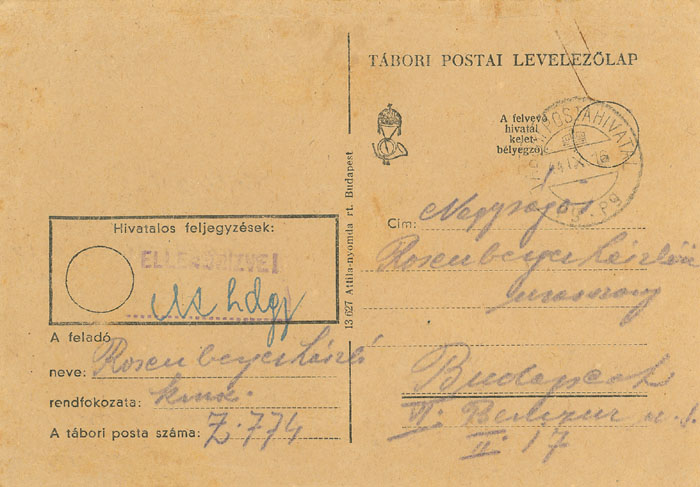 TÁBORI POSTAI LEVELEZŐLAP
A felvevő
hivatal
kelet-
bélyegzője
TÁBORI POSTAHIVATAL
Hivatalos feljegyzések:
ELLENŐRIZVE!
13 627 Attila-nyomda rt. Budapest
A feladó
neve: Rosenberger László
rendfokozata: kmsz.
A tábori posta száma: Z. 774
Cím: Nagyságos
Rosenberger Lászlóné
úrasszony
Budapest
VI.
II. 17